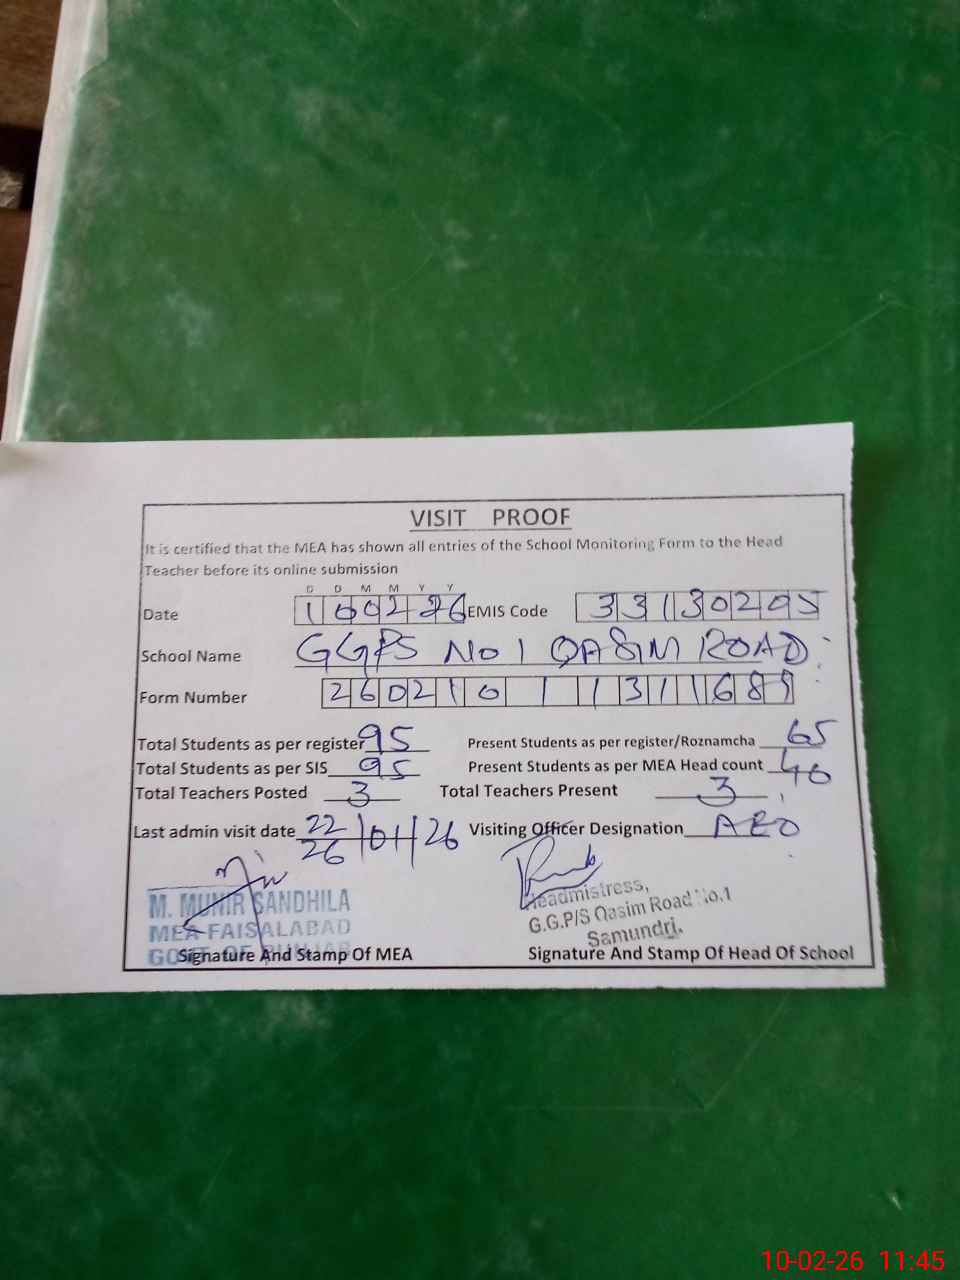 VISIT PROOF
It is certified that the MEA has shown all entries of the School Monitoring Form to the Head
Teacher before its online submission
D D M M Y Y
Date 100226 EMIS Code 33130205
School Name GGPS No 1 QASIM ROAD
Form Number 26021011311689
Total Students as per register 95 Present Students as per register/Roznamcha 65
Total Students as per SIS 95 Present Students as per MEA Head count 40
Total Teachers Posted 3 Total Teachers Present 3
Last admin visit date 22/01/26 Visiting Officer Designation AEO
26
M. MUNIR SANDHILA
MEA FAISALABAD
GOVT OF PUNJAB
Signature And Stamp Of MEA
Headmistress,
G.G.P/S Qasim Road No.1
Samundri.
Signature And Stamp Of Head Of School
10-02-26 11:45